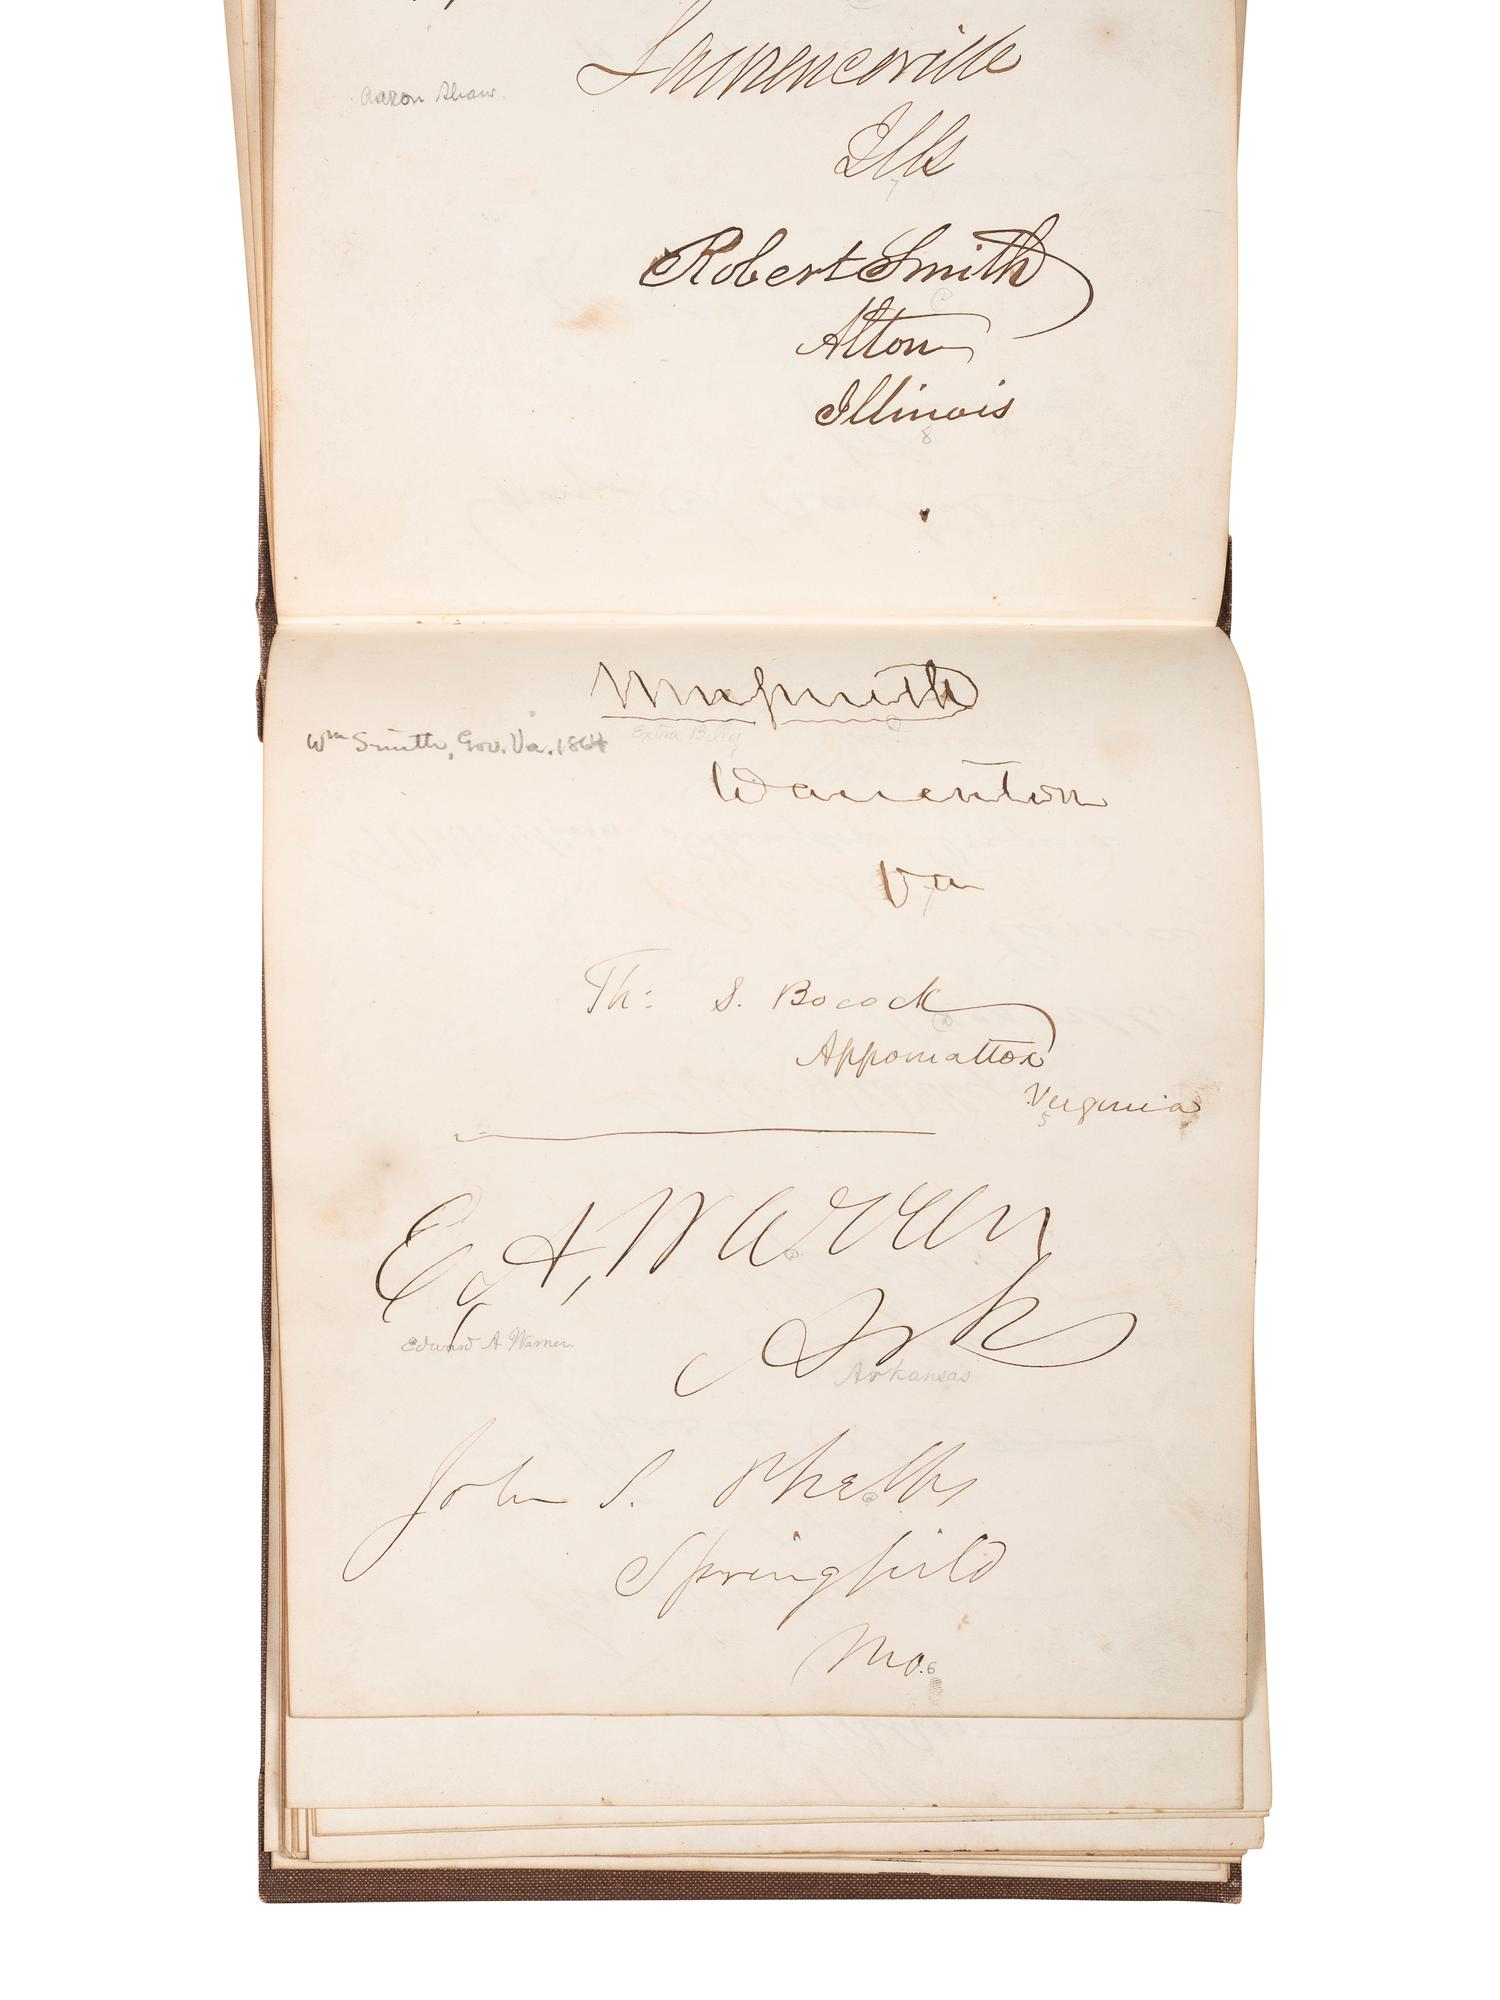 Lawrenceville
Aaron Shaw.
Ills
7
Robert Smith
Alton
Illinois
8
Wm Smith
Wm Smith, Gov. Va. 1864
Extra Billy
Warrenton
Va
Th: S. Bocock
Appomattox
Virginia
5
E, A, Warren
Ark
Edward A Warner.
Arkansas
John S. Phelps
Springfield
Mo.
6